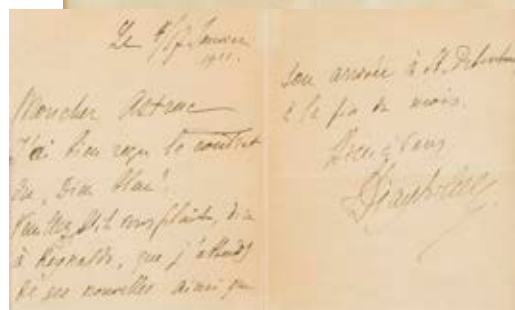 Le 4/17 Janvier
1911.
Mon cher Astruc
J'ai bien reçu le contrat
du "Dieu bleu".
Veuillez, s'il vous plaît, dire
à Reynaldo, que j'attends
de ses nouvelles ainsi que
son arrivée à St.
à la fin du mois.
à vous